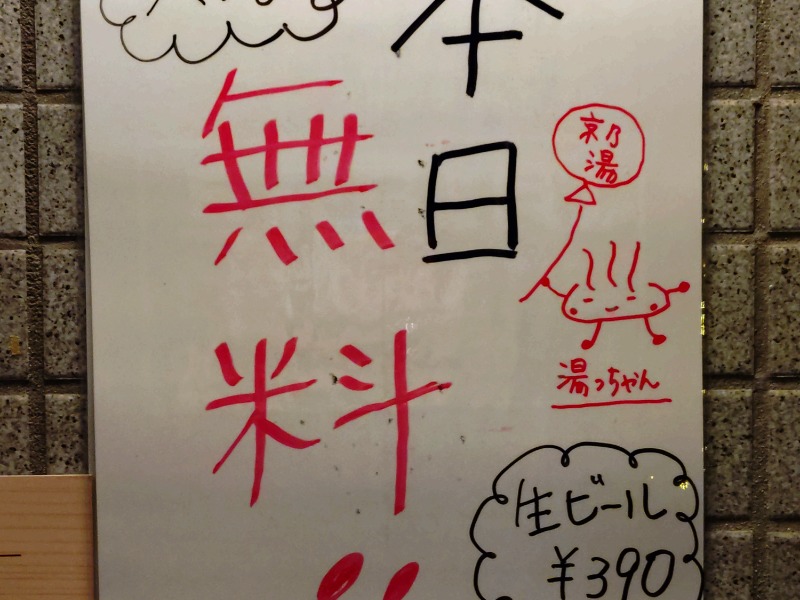 本日
無料!!
湯
湯っちゃん
生ビール
¥390